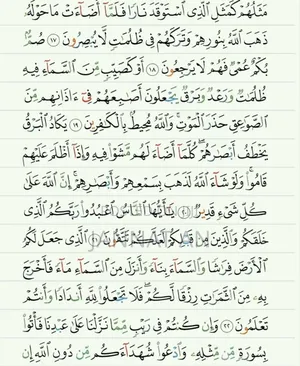 مَثَلُهُمْ كَمَثَلِ ٱلَّذِى ٱسْتَوْقَدَ نَارًا فَلَمَّآ أَضَآءَتْ مَا حَوْلَهُۥ
ذَهَبَ ٱللَّهُ بِنُورِهِمْ وَتَرَكَهُمْ فِى ظُلُمَٰتٍ لَّا يُبْصِرُونَ ١٧ صُمٌّۢ
بُكْمٌ عُمْىٌ فَهُمْ لَا يَرْجِعُونَ ١٨ أَوْ كَصَيِّبٍ مِّنَ ٱلسَّمَآءِ فِيهِ
ظُلُمَٰتٌ وَرَعْدٌ وَبَرْقٌ يَجْعَلُونَ أَصَٰبِعَهُمْ فِىٓ ءَاذَانِهِم مِّنَ
ٱلصَّوَٰعِقِ حَذَرَ ٱلْمَوْتِ وَٱللَّهُ مُحِيطٌۢ بِٱلْكَٰفِرِينَ ١٩ يَكَادُ ٱلْبَرْقُ
يَخْطَفُ أَبْصَٰرَهُمْ كُلَّمَآ أَضَآءَ لَهُم مَّشَوْا۟ فِيهِ وَإِذَآ أَظْلَمَ عَلَيْهِمْ
قَامُوا۟ وَلَوْ شَآءَ ٱللَّهُ لَذَهَبَ بِسَمْعِهِمْ وَأَبْصَٰرِهِمْ إِنَّ ٱللَّهَ عَلَىٰ
كُلِّ شَىْءٍ قَدِيرٌ ٢٠ يَٰٓأَيُّهَا ٱلنَّاسُ ٱعْبُدُوا۟ رَبَّكُمُ ٱلَّذِى
خَلَقَكُمْ وَٱلَّذِينَ مِن قَبْلِكُمْ لَعَلَّكُمْ تَتَّقُونَ ٢١ ٱلَّذِى جَعَلَ لَكُمُ
ٱلْأَرْضَ فِرَٰشًا وَٱلسَّمَآءَ بِنَآءً وَأَنزَلَ مِنَ ٱلسَّمَآءِ مَآءً فَأَخْرَجَ
بِهِۦ مِنَ ٱلثَّمَرَٰتِ رِزْقًا لَّكُمْ فَلَا تَجْعَلُوا۟ لِلَّهِ أَندَادًا وَأَنتُمْ
تَعْلَمُونَ ٢٢ وَإِن كُنتُمْ فِى رَيْبٍ مِّمَّا نَزَّلْنَا عَلَىٰ عَبْدِنَا فَأْتُوا۟
بِسُورَةٍ مِّن مِّثْلِهِۦ وَٱدْعُوا۟ شُهَدَآءَكُم مِّن دُونِ ٱللَّهِ إِن